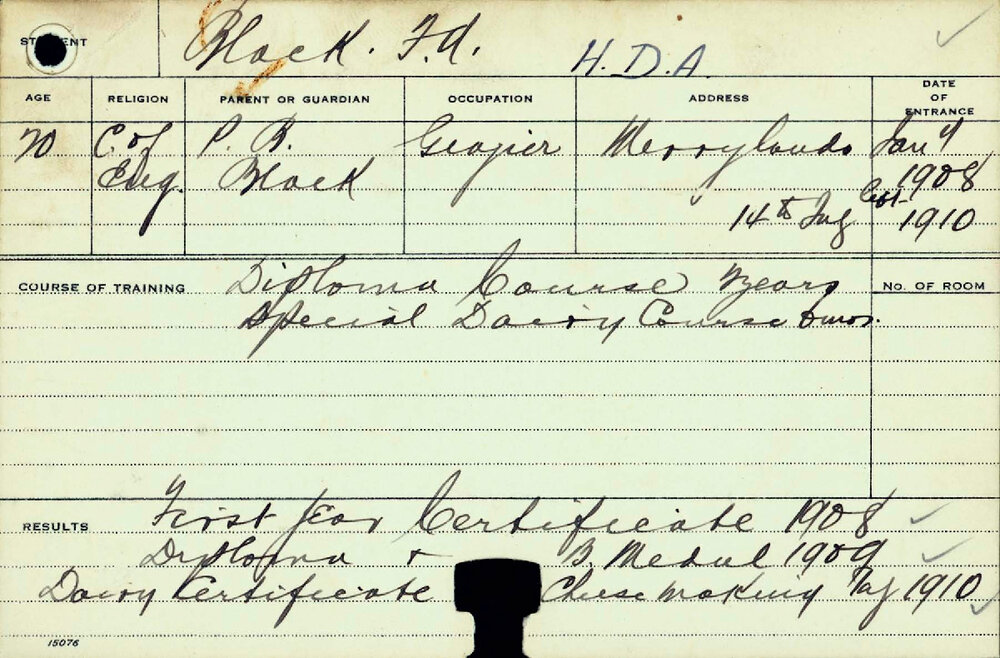 STUDENT Black. F.A. H.D.A.
AGE RELIGION PARENT OR GUARDIAN OCCUPATION ADDRESS DATE OF ENTRANCE
20 C. of P. B. Grazier Merrylands Jan
Eng. Black 1908
14th 1910
COURSE OF TRAINING Diploma Course years No. OF ROOM
Special Dairy Course 6 mos.
RESULTS First Year Certificate 1908
Diploma & B. Medal 1909
Dairy Certificate Cheese making 1910
15076